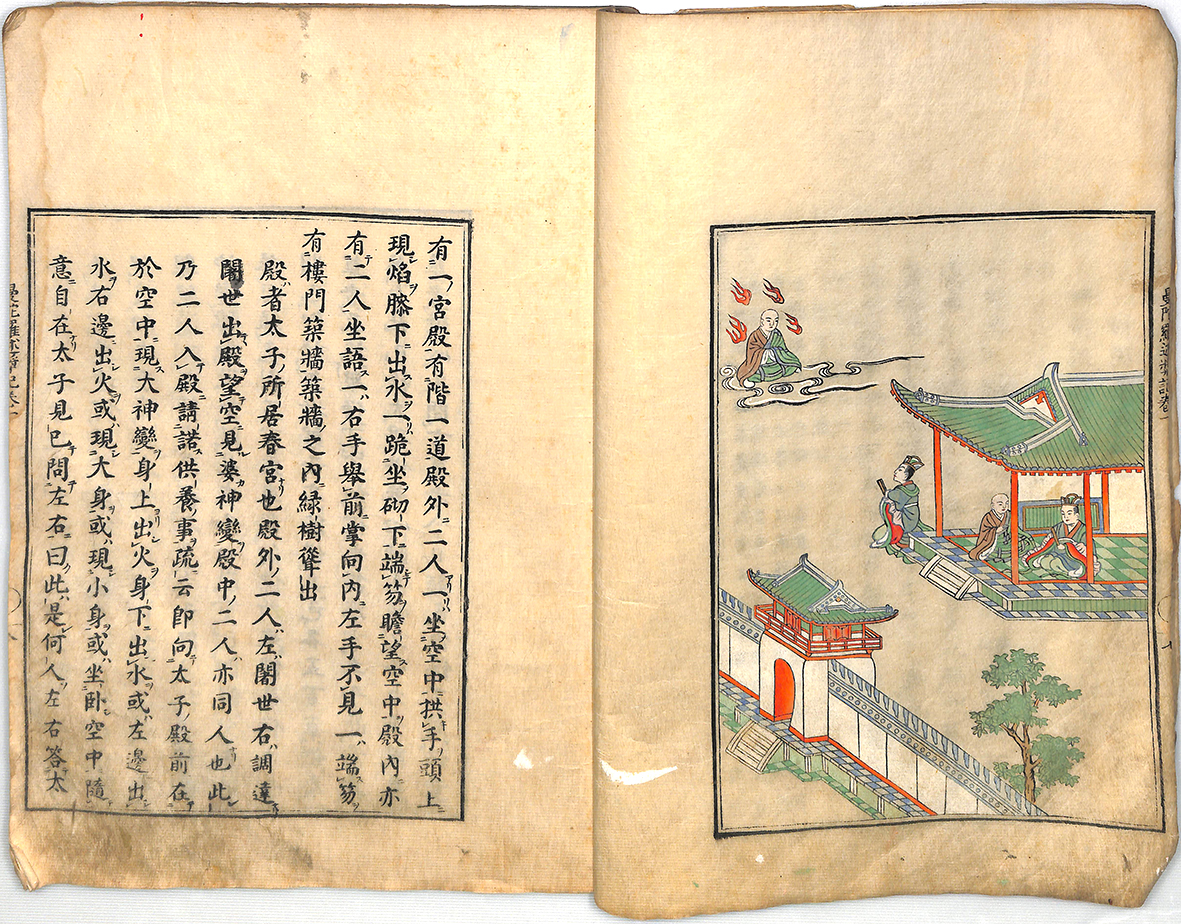 有一宮殿有階一道殿外二人一坐空中拱手頭上
現焰膝下出水一跪坐砌下端笏瞻望空中殿内亦
有二人坐語一右手舉前掌向内左手不見一端笏
有樓門築牆築牆之内緑樹聳出
殿者太子所居春宮也殿外二人左闍世右調達
闍世出殿望空見婆神變殿中二人亦同人也此
乃二人入殿請諾供養事疏云即向太子殿前在
於空中現大神變身上出火身下出水或左邊出
水右邊出火或現大身或現小身或坐卧空中隨
意自在太子見已問左右曰此是何人左右答太